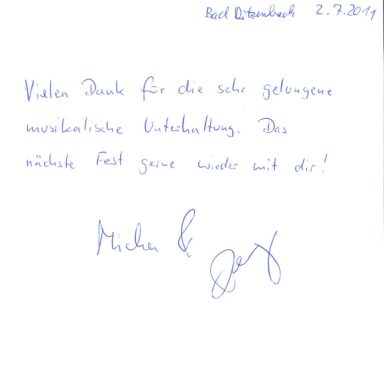 Bad Ditzenbach 2.7.2011
Vielen Dank für die sehr gelungene
musikalische Unterhaltung. Das
nächste Fest gerne wieder mit dir!
&